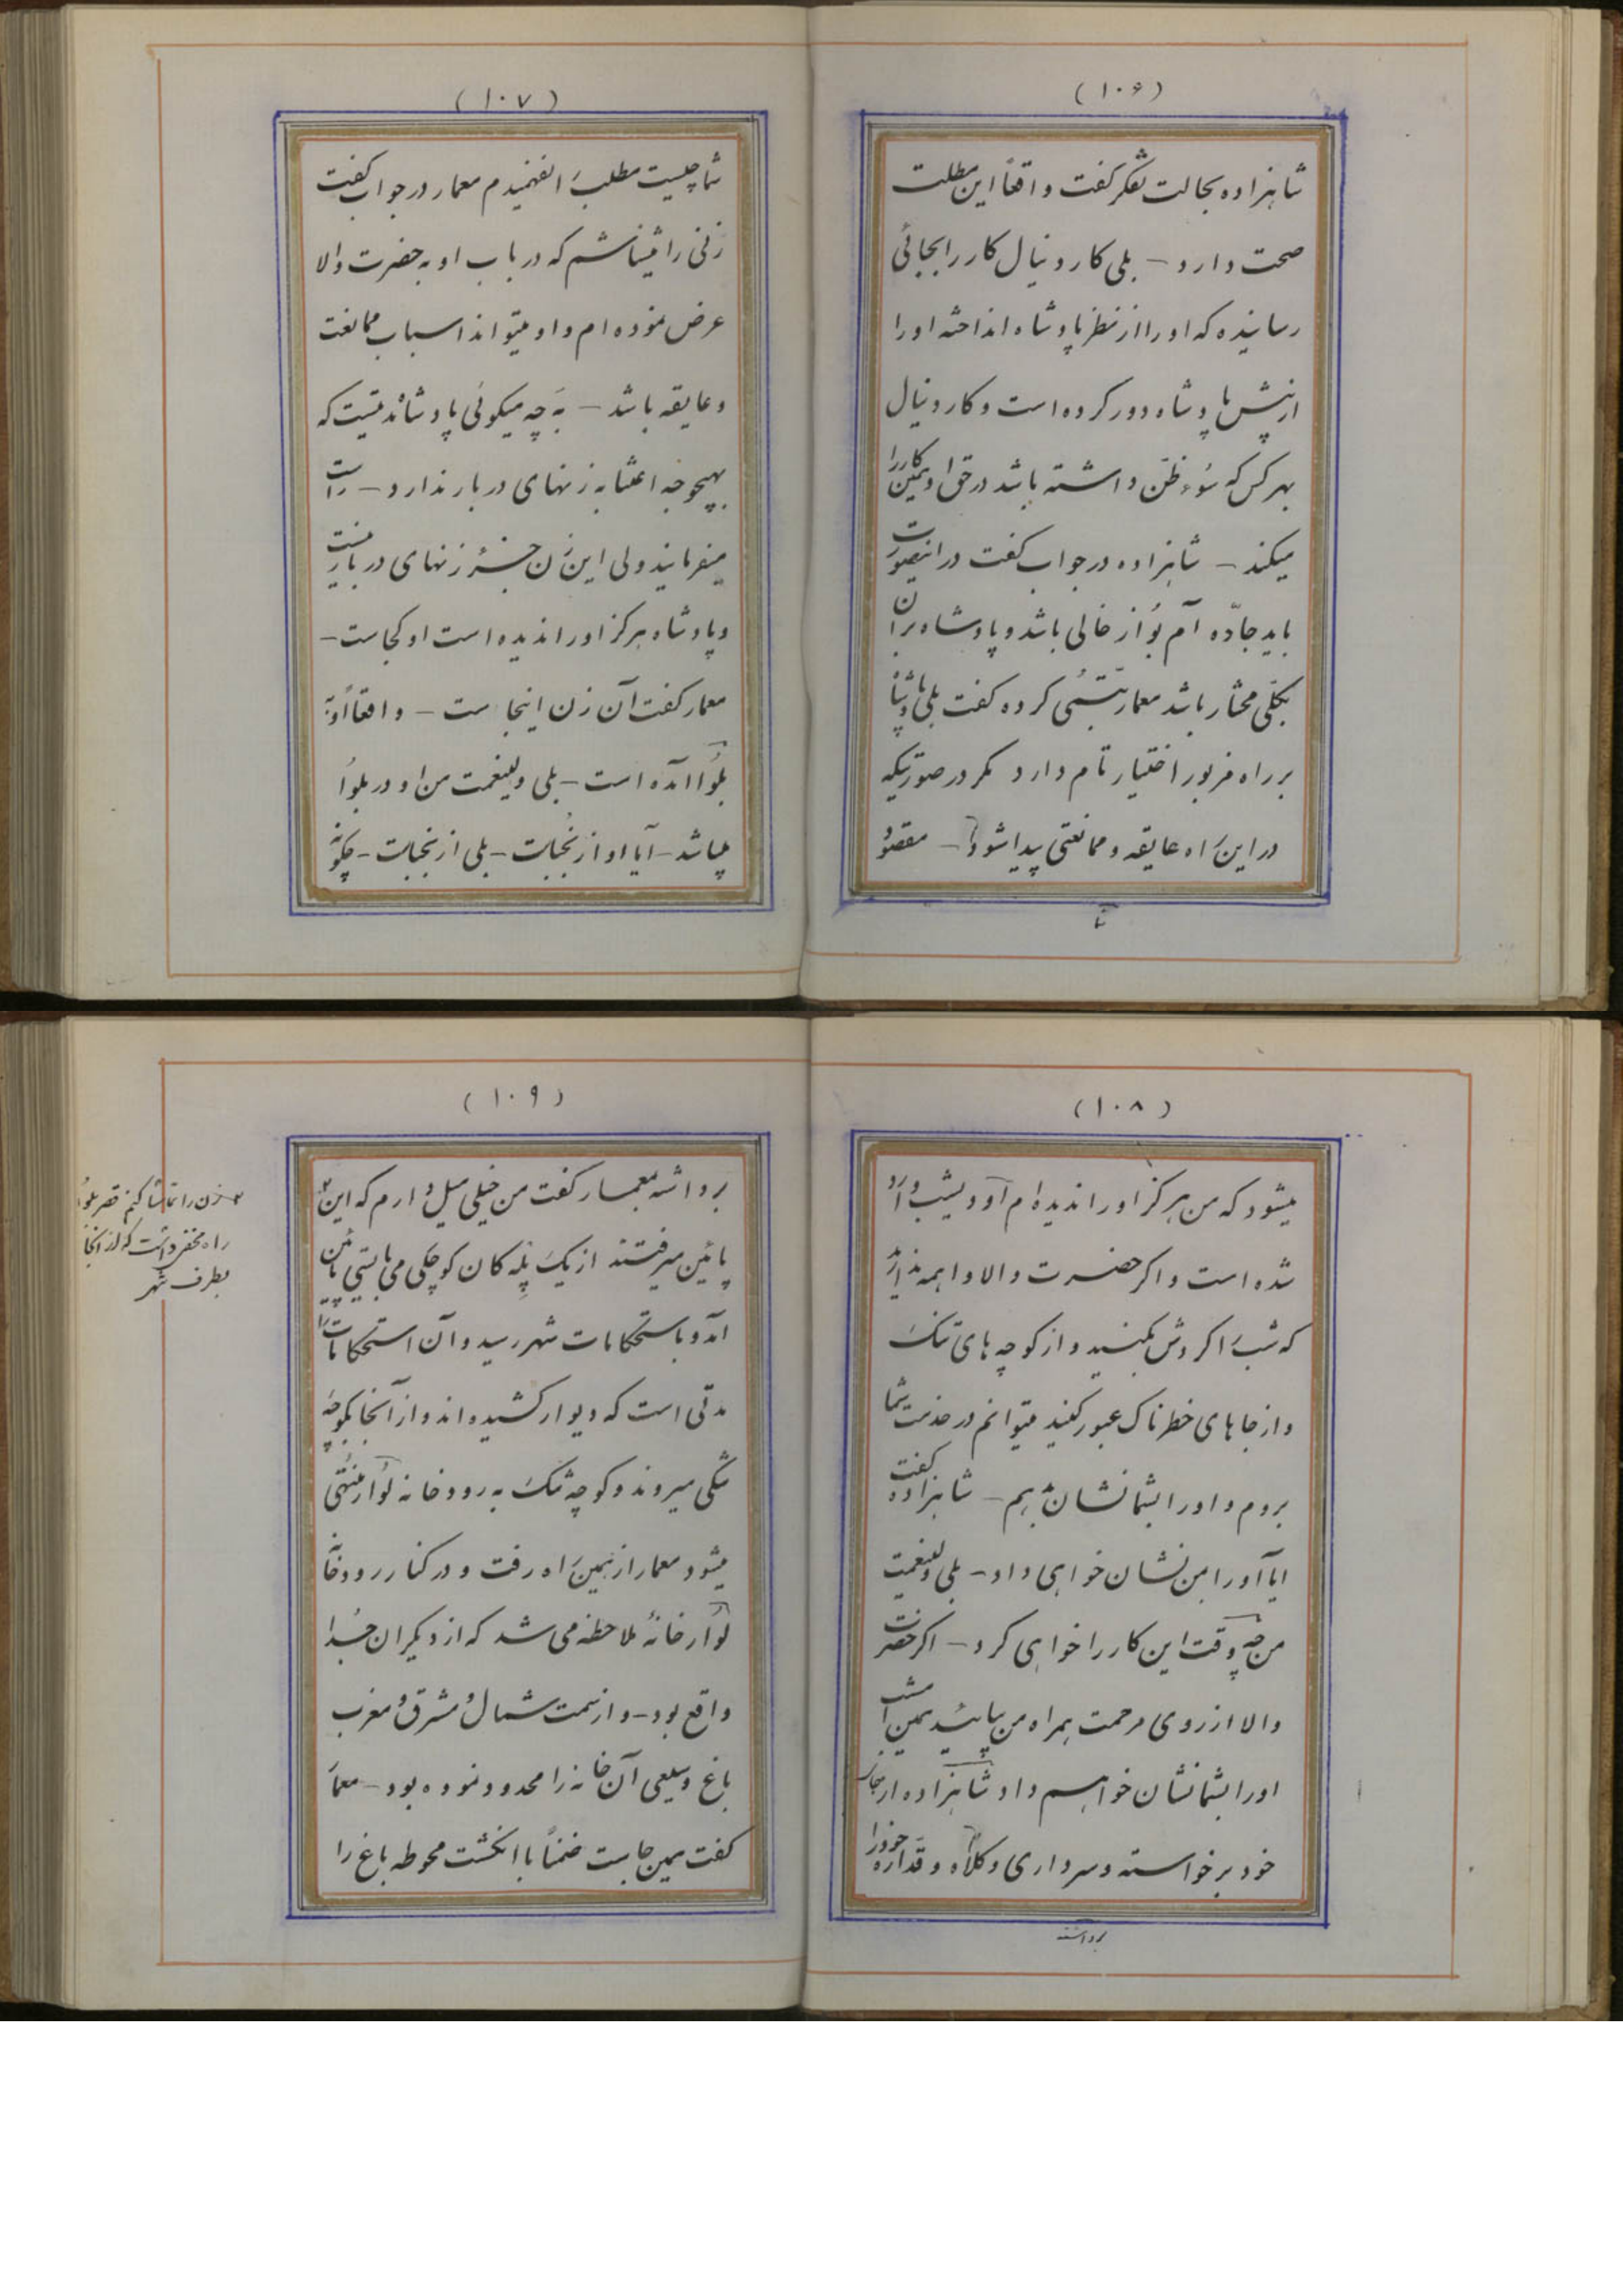 (۱۰۶)
شاهزاده بحالت تفکر گفت واقعاً این مطلب
صحت دارد – بلی کاردینال کار را بجائی
رسانیده که او را از نظر پادشاه انداخته او را
از پیش پادشاه دور کرده است و کاردینال
بهر کس که سوء ظن داشته باشد در حق او همین کار را
میکند – شاهزاده در جواب گفت در اینصورت
باید جادّه آم بُواز خالی باشد و پادشاه بر آن
بکلّی مختار باشد معمار تبسّمی کرده گفت بلی پادشاه
بر راه مزبور اختیار تام دارد مگر در صورتیکه
در این راه عایقه و ممانعتی پیدا شود – مقصود
شما
(۱۰۷)
شما چیست مطلب را نفهمیدم معمار در جواب گفت
زنی را میشناسم که در باب او به حضرت والا
عرض نموده ام و او میتواند اسباب ممانعت
و عایقه باشد – به چه میگوئی پادشاه مدتیست که
بهیچوجه اعتنا به زنهای دربار ندارد – راست
میفرمایند ولی این زن جزء زنهای دربار نیست
و پادشاه هرگز او را ندیده است او کجاست –
معمار گفت آن زن اینجاست – واقعاً او به
بلوُا آمده است – بلی ولینعمت من او در بلوُا
میباشد – آیا او از نُجَباست – بلی از نجباست – چگونه
(۱۰۸)
میشود که من هرگز او را ندیده ام او دیشب وارد
شده است و اگر حضرت والا واهمه ندارند
که شب را گردش بکنید و از کوچه های تنگ
و از جاهای خطرناک عبور کنید میتوانم در خدمت شما
بروم و او را بشما نشان بدهم – شاهزاده گفت
ایا او را بمن نشان خواهی داد – بلی ولینعمت
من چه وقت این کار را خواهی کرد – اگر حضرت
والا از روی مرحمت همراه من بیائید همین امشب
او را بشما نشان خواهم داد شاهزاده از جای
خود برخواسته و سرداری و کلاه و قداره خود را
برداشته
(۱۰۹)
برداشته بمعمار گفت من خیلی میل دارم که این
۲ زن را تماشا کنم قصر بلوُا
راه مخفی داشت که از آنجا
بطرف شهر
پائین میرفتند از یک پله کان کوچکی می بایستی پائین
آمد و باستحکامات شهر رسید و آن استحکامات را
مدتی است که دیوار کشیده اند و از آنجا بکوچه
تنگی میروند و کوچه تنگ به رودخانه لُوآر منتهی
میشود معمار از همین راه رفت و در کنار رودخانه
لُوآر خانه ملاحظه می شد که از دیگران جُدا
واقع بود – و از سمت شمال و مشرق و مغرب
باغ وسیعی آن خانه را محدود نموده بود – معمار
گفت همین جاست ضمناً با انگشت محوطه باغ را